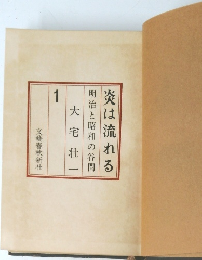 炎は流れる
明治と昭和の谷間
大宅壮一
1
文藝春秋新社